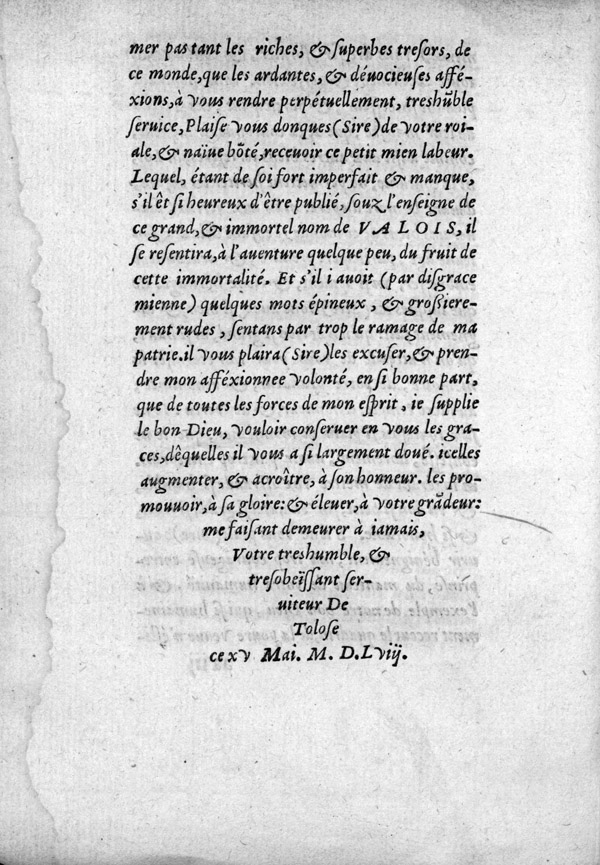 mer pas tant les riches, & ſuperbes treſors, de
ce monde, que les ardantes, & dévocieuſes affé-
xions, à vous rendre perpétuellement, treshũble
ſervice, Plaiſe vous donques (Sire) de votre roi-
ale, & naïue bõté, recevoir ce petit mien labeur.
Lequel, étant de ſoi fort imperfait & manque,
s'il êt ſi heureux d'être publié, ſouz l'enſeigne de
ce grand, & immortel nom de VALOIS, il
ſe reſentira, à l'auenture quelque peu, du fruit de
cette immortalité. Et s'il i auoit (par diſgrace
mienne) quelques mots épineux, & groſsiere-
ment rudes, ſentans par trop le ramage de ma
patrie. il vous plaira (Sire) les excuſer, & pren-
dre mon afféxionnee volonté, en ſi bonne part,
que de toutes les forces de mon eſprit, ie ſupplie
le bon Dieu, vouloir conſeruer en vous les gra-
ces, dêquelles il vous a ſi largement doué. icelles
augmenter, & acroître, à ſon honneur. les pro-
mouuoir, à ſa gloire: & éleuer, à votre grãdeur:
me faiſant demeurer à iamais,
Votre treshumble, &
treſobeïſſant ſer-
uiteur De
Toloſe
ce xv Mai. M. D. Lviij.